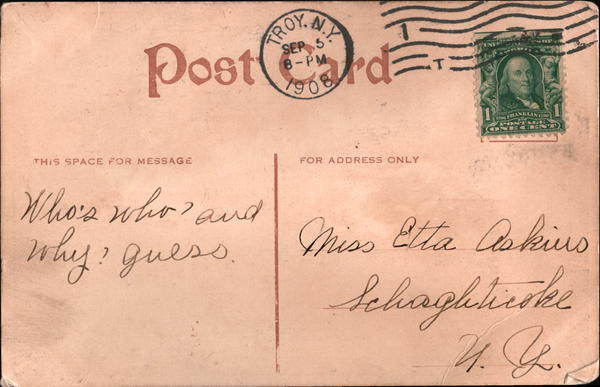 Post Card
TROY, N.Y.
SEP 5
8-PM
1908
1
T
FRANKLIN
1 1
POSTAGE
ONE CENT
THIS SPACE FOR MESSAGE
FOR ADDRESS ONLY
Who's who? and
why? guess.
Miss Etta Askins
Schaghticoke
N. Y.